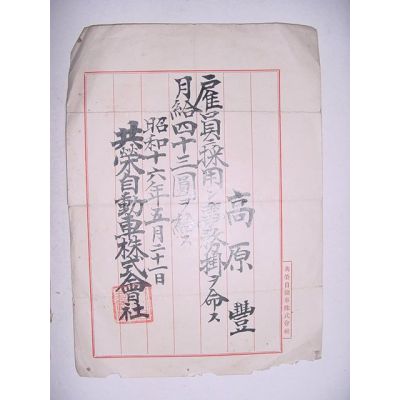 高原 豐
雇員ニ採用シ務掛ヲ命ス
月給四十三圓ヲ給ス
昭和十六年五月二十一日
共榮自動車株式會社
共榮自動車株式會社